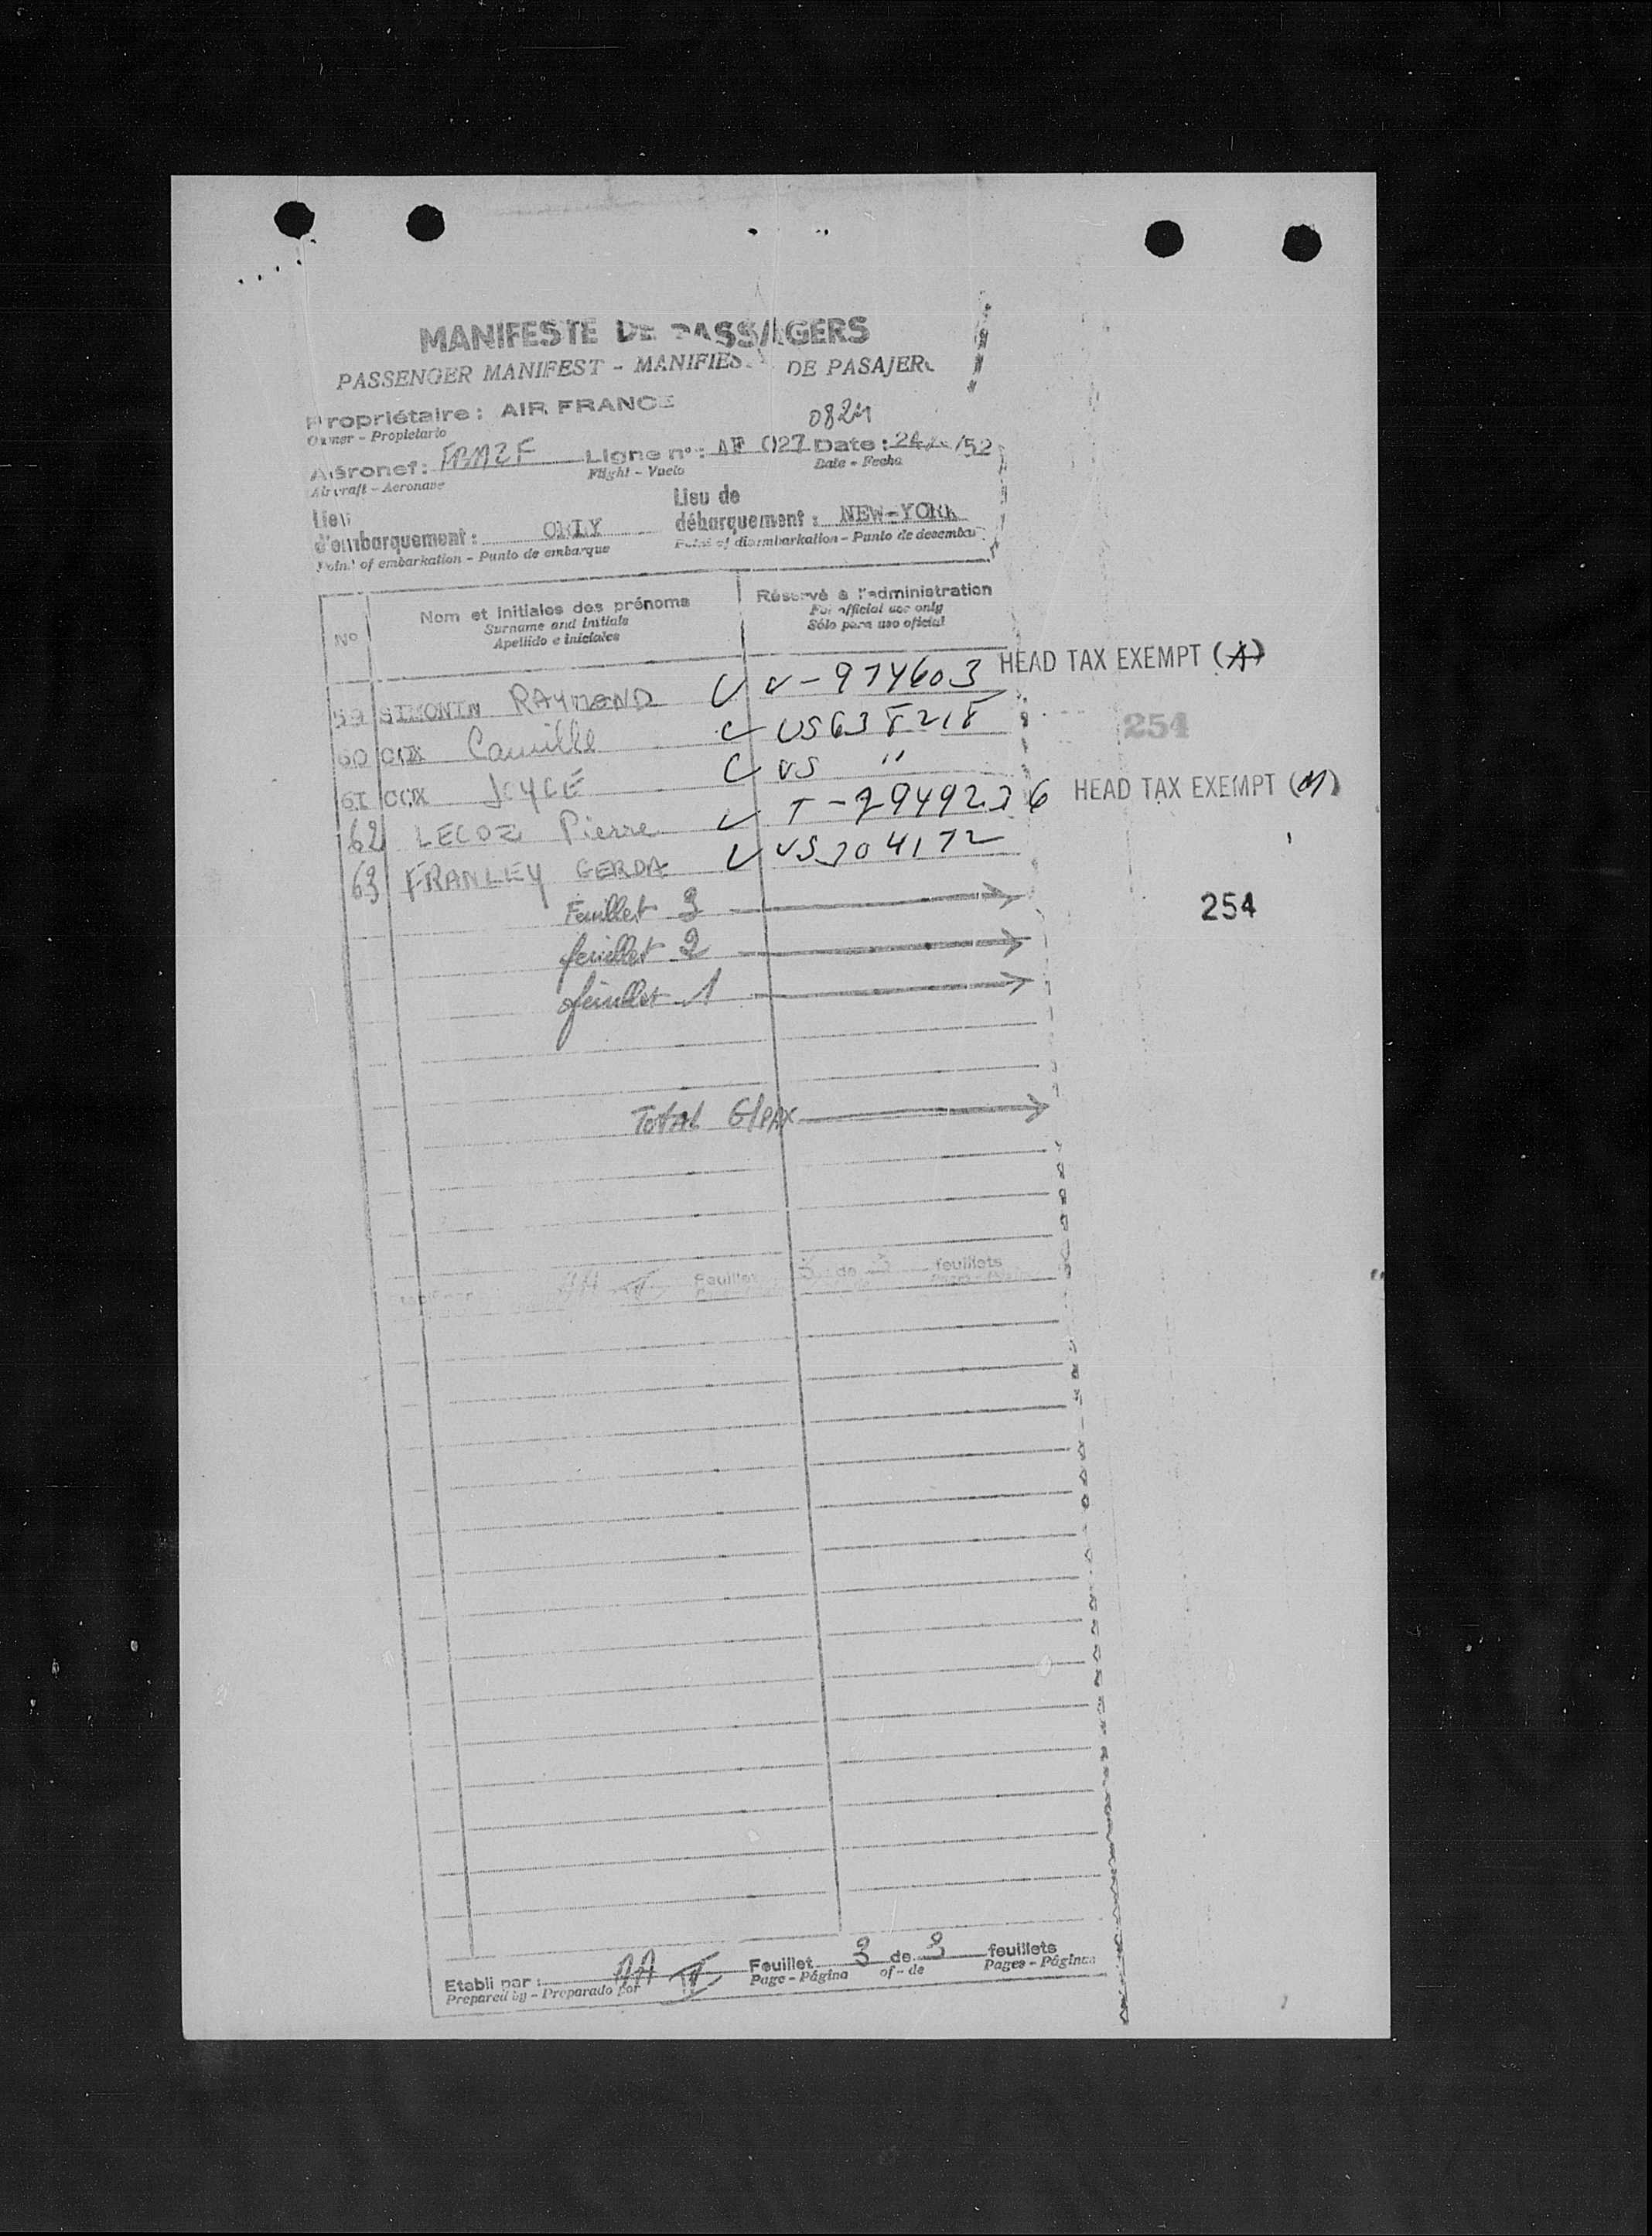 MANIFESTE DE PASSAGERS
PASSENGER MANIFEST - MANIFIES DE PASAJER
Propriétaire : AIR FRANCE
Owner - Propietario
0824
Aéronef : FBAZF Ligne n° : AF 027 Date : 24/ /52
Aircraft - Aeronave Flight - Vuelo Date - Fecha
Lieu d'embarquement : ORLY
Point of embarkation - Punto de embarque
Lieu de débarquement : NEW-YORK
Point of disembarkation - Punto de desembar
Nº
Nom et initiales des prénoms
Surname and initials
Apellido e iniciales
Réservé à l'administration
For official use only
Sólo para uso oficial
59 SIMONIN RAYMOND V-974603 HEAD TAX EXEMPT (A)
60 COX Camille US638218
254
61 COX JOYCE US "
62 LECOZ Pierre T-2949236 HEAD TAX EXEMPT
63 FRANLEY GERDA
Feuillet 3
254
feuillet 2
feuillet 1
TOTAL
Feuillet 3 de 3 feuillets
Etabli par : AA
Prepared by - Preparado por
Feuillet 3 de 3 feuillets
Page - Página of - de Pages - Páginas